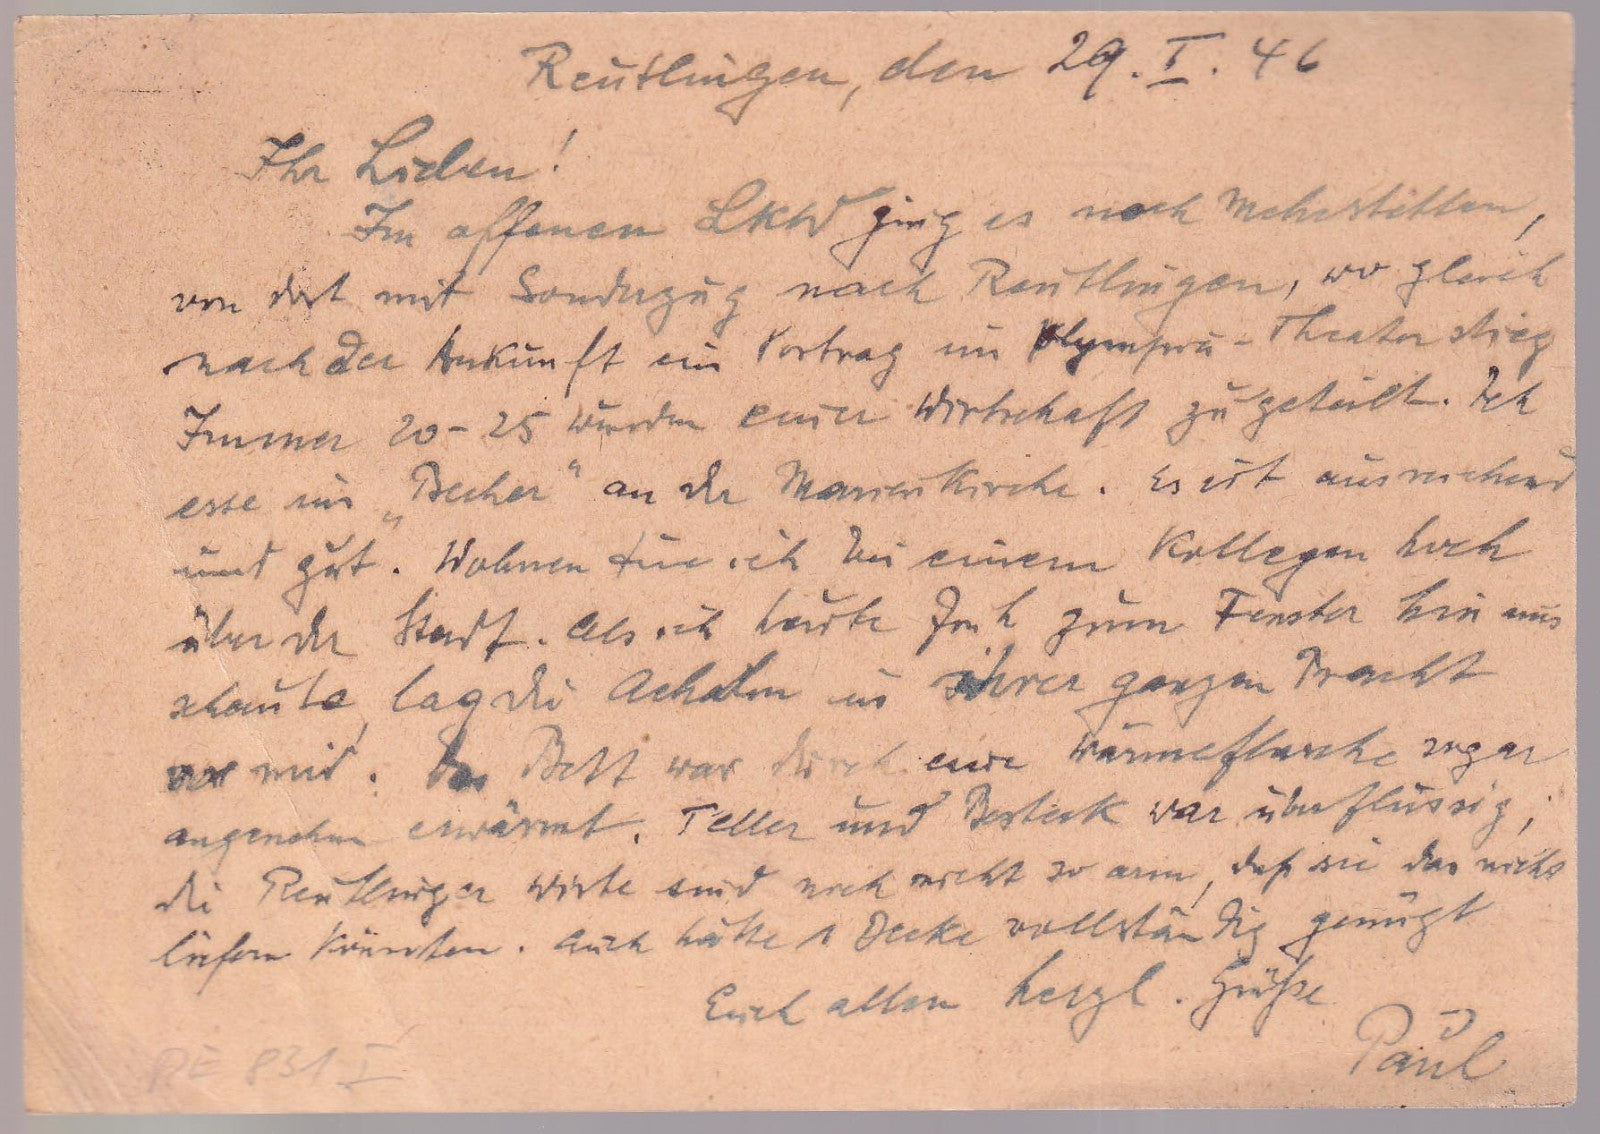 Reutlingen, den 29. I. 46
Ihr Lieben!
Im offenen LKW ging es nach Mehrstetten,
von dort mit Sonderzug nach Reutlingen, wo gleich
nach der Ankunft ein Vortrag im Olympia-Theater stieg
Immer 20-25 wurden einer Wirtschaft zugeteilt. Ich
esse im „Becher“ an der Marienkirche. Es ist ausreichend
und gut. Wohnen tue ich bei einem Kollegen hoch
über der Stadt. Als ich heute früh zum Fenster hinaus
schaute, lag die Achalm in ihrer ganzen Pracht
vor mir. Das Bett war durch eine Wärmeflasche sogar
angenehm erwärmt. Teller und Besteck war überflüssig,
die Reutlinger Wirte sind noch nicht so arm, daß sie das nicht
liefern könnten. Auch hätte 1 Decke vollständig genügt
Euch allen herzl. Grüße
Paul
DE 831 I